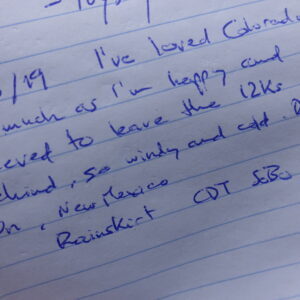 /19 I've loved Colorado
much as I'm happy and
to leave the 12Ks
behind, so windy and cold.
On, New Mexico
Rainskirt CDT SoBo